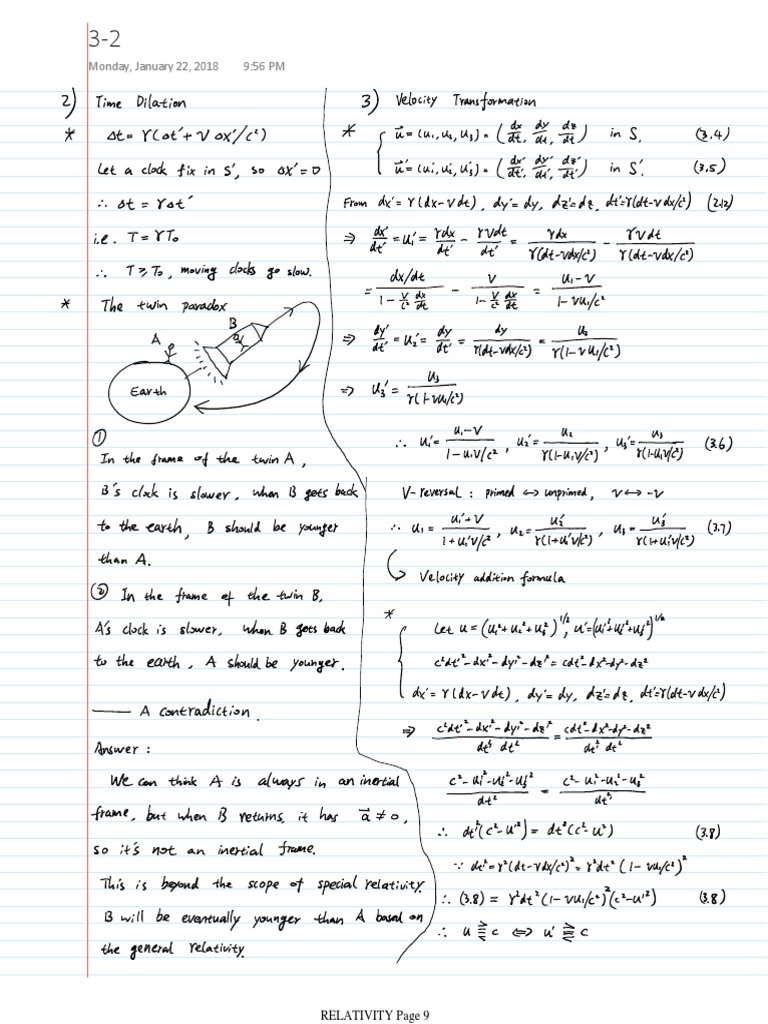 3-2
Monday, January 22, 2018 9:56 PM
2) Time Dilation
* Δt = γ(Δt' + V Δx'/c²)
Let a clock fix in S', so Δx' = 0
∴ Δt = γΔt'
i.e. T = γT₀
∴ T ≥ T₀, moving clocks go slow.
* The twin paradox
A
B
Earth
①
In the frame of the twin A,
B's clock is slower, when B gets back
to the earth, B should be younger
than A.
② In the frame of the twin B,
A's clock is slower, when B gets back
to the earth, A should be younger.
—— A contradiction.
Answer:
We can think A is always in an inertial
frame, but when B returns, it has a⃗ ≠ 0,
so it's not an inertial frame.
This is beyond the scope of special relativity.
B will be eventually younger than A based on
the general relativity.
3) Velocity Transformation
* u⃗ = (u₁, u₂, u₃) = (dx/dt, dy/dt, dz/dt) in S, (3.4)
u⃗' = (u₁', u₂', u₃') = (dx'/dt', dy'/dt', dz'/dt') in S'. (3.5)
From dx' = γ(dx-vdt), dy' = dy, dz' = dz, dt' = γ(dt-vdx/c²) (2.12)
⇒ dx'/dt' = u₁' = γdx/dt' - γVdt/dt' = γdx/γ(dt-vdx/c²) - γVdt/γ(dt-vdx/c²)
= (dx/dt)/(1 - V/c² dx/dt) - V/(1 - V/c² dx/dt) = (u₁-V)/(1-Vu₁/c²)
⇒ dy'/dt' = u₂' = dy/dt' = dy/γ(dt-vdx/c²) = u₂/γ(1-Vu₁/c²)
⇒ u₃' = u₃/γ(1-Vu₁/c²)
∴ u₁' = (u₁-V)/(1-u₁V/c²), u₂' = u₂/γ(1-u₁V/c²), u₃' = u₃/γ(1-u₁V/c²) (3.6)
V-reversal: primed ↔ unprimed, V ↔ -V
∴ u₁ = (u₁'+V)/(1+u₁'V/c²), u₂ = u₂'/γ(1+u₁'V/c²), u₃ = u₃'/γ(1+u₁'V/c²) (3.7)
Velocity addition formula
* Let u = (u₁²+u₂²+u₃²)^1/2, u' = (u₁'²+u₂'²+u₃'²)^1/2
c²dt'²-dx'²-dy'²-dz'² = cdt²-dx²-dy²-dz²
dx' = γ(dx-vdt), dy' = dy, dz' = dz, dt' = γ(dt-vdx/c²)
⇒ (c²dt'²-dx'²-dy'²-dz'²)/(dt'² dt²) = (cdt²-dx²-dy²-dz²)/(dt'² dt²)
(c²-u₁'²-u₂'²-u₃'²)/dt² = (c²-u₁²-u₂²-u₃²)/dt'²
∴ dt'²(c²-u'²) = dt²(c²-u²) (3.8)
∵ dt'² = γ²(dt-vdx/c²)² = γ²dt²(1-Vu₁/c²)²
∴ (3.8) = γ²dt²(1-Vu₁/c²)²(c²-u'²) (3.8)
∴ u ⋛ c ⇔ u' ⋛ c
RELATIVITY Page 9